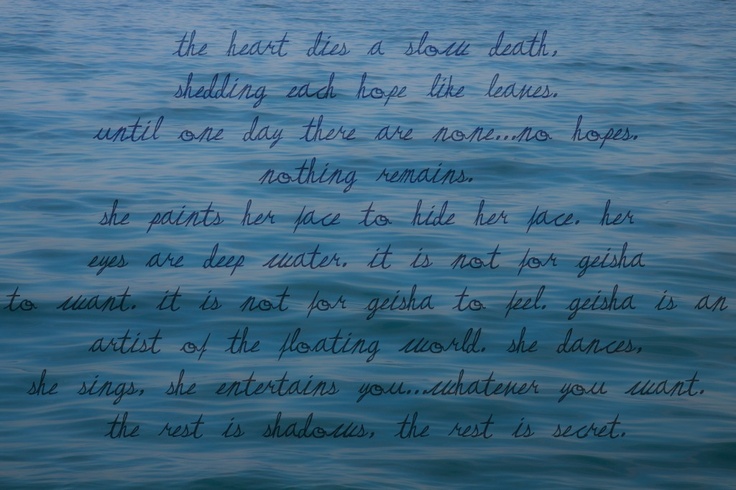 the heart dies a slow death,
shedding each hope like leaves.
until one day there are none...no hopes.
nothing remains.
she paints her face to hide her face. her
eyes are deep water. it is not for geisha
to want. it is not for geisha to feel. geisha is an
artist of the floating world. she dances,
she sings, she entertains you...whatever you want.
the rest is shadows, the rest is secret.